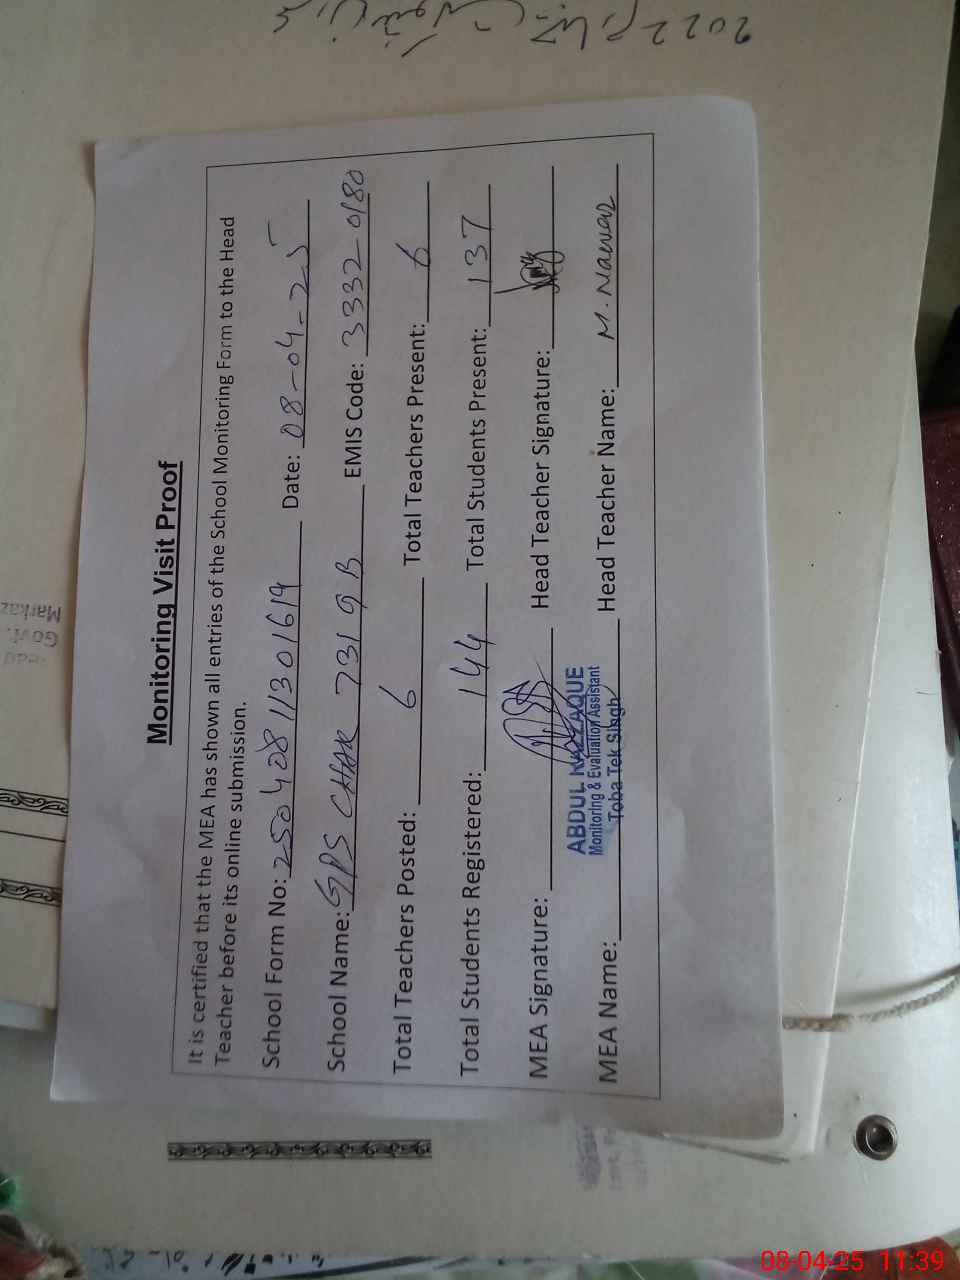 Monitoring Visit Proof
It is certified that the MEA has shown all entries of the School Monitoring Form to the Head
Teacher before its online submission.
School Form No: 25040811301619 Date: 08-04-25
School Name: GPS CHAK 731 GB EMIS Code: 33320180
Total Teachers Posted: 6 Total Teachers Present: 6
Total Students Registered: 144 Total Students Present: 137
MEA Signature: Head Teacher Signature:
ABDUL RAZZAQUE
Monitoring & Evaluation Assistant
Toba Tek Singh
MEA Name: Head Teacher Name: M. Nawaz
2022
Govt.
Markaz
08-04-25 11:39